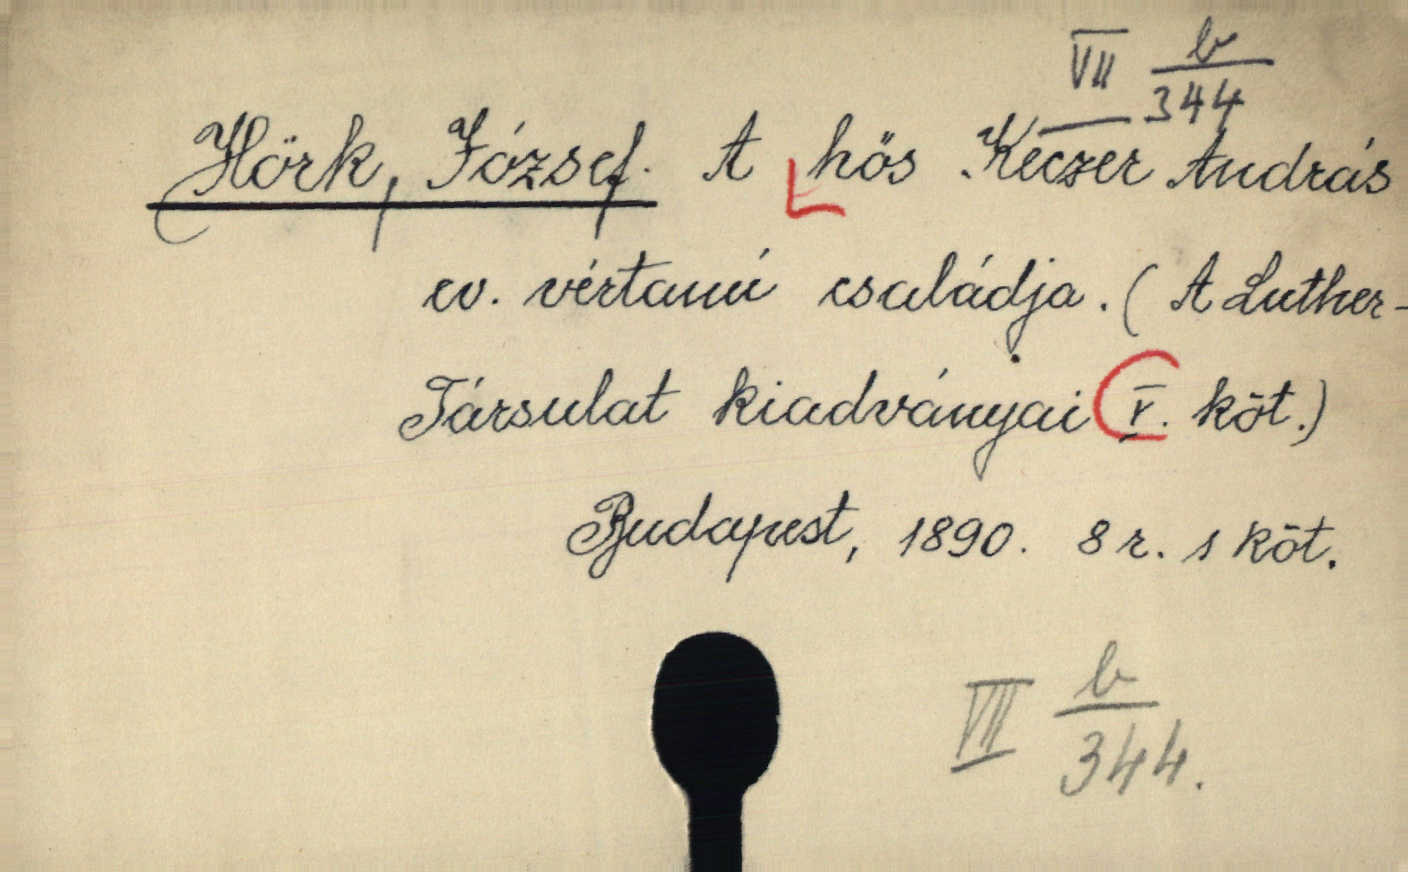 VII b/344
Hörk, József. A hős Keczer András
ev. vértanú családja. (A Luther-
Társulat kiadványai V. köt.)
Budapest, 1890. 8 r. 1 köt.
VII b/344.